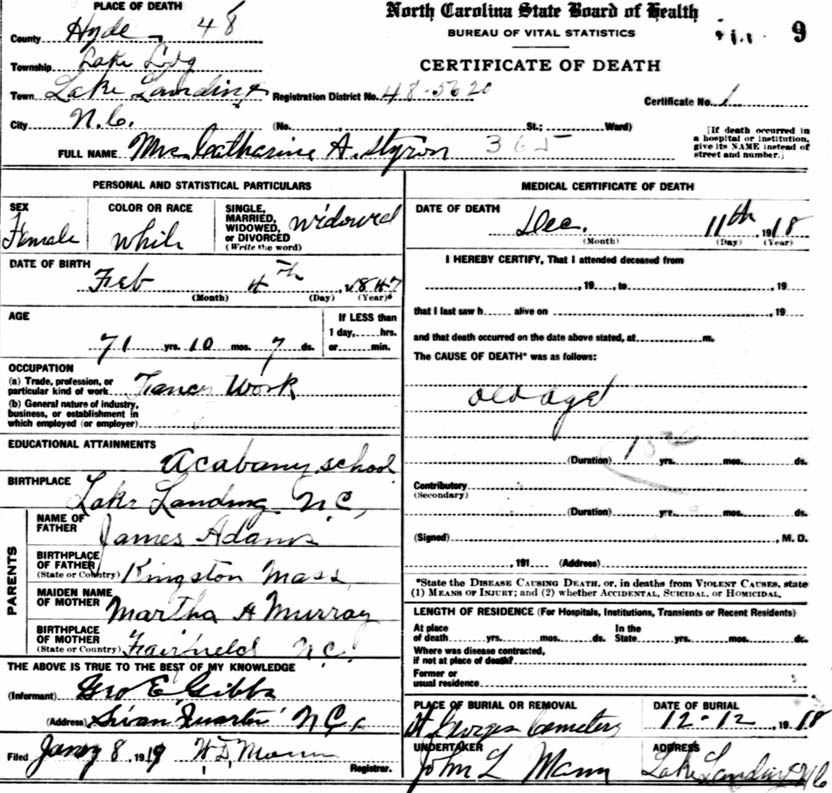 PLACE OF DEATH
County Hyde 48
Township Lake Ldg
Town Lake Landing
City N.C.
North Carolina State Board of Health
BUREAU OF VITAL STATISTICS
9
CERTIFICATE OF DEATH
Registration District No. 48-5620
Certificate No. 1
(No. St.; Ward)
[If death occurred in a hospital or institution, give its NAME instead of street and number.]
FULL NAME Mrs Catharine A. Styron 365
PERSONAL AND STATISTICAL PARTICULARS
SEX
Female
COLOR OR RACE
While
SINGLE, MARRIED, WIDOWED, or DIVORCED
(Write the word)
Widowed
DATE OF BIRTH
Feb 4th, 1847
(Month) (Day) (Year)
AGE
71 yrs. 10 mos. 7 ds.
If LESS than
1 day, hrs.
or min.
OCCUPATION
(a) Trade, profession, or
particular kind of work Work
(b) General nature of industry,
business, or establishment in
which employed (or employer)
EDUCATIONAL ATTAINMENTS
Acabany school
BIRTHPLACE
Lake Landing N.C,
PARENTS
NAME OF
FATHER
James Adams
BIRTHPLACE
OF FATHER
(State or Country) Kingston Mass
MAIDEN NAME
OF MOTHER
Martha A Murray
BIRTHPLACE
OF MOTHER
(State or Country) Fairfield N.C.
THE ABOVE IS TRUE TO THE BEST OF MY KNOWLEDGE
(Informant) Geo E Gibbs
(Address) Swan Quarter N.C.
Filed Jany 8, 1919 W.D. Mann
Registrar.
MEDICAL CERTIFICATE OF DEATH
DATE OF DEATH
Dec. 11th, 1918
(Month) (Day) (Year)
I HEREBY CERTIFY, That I attended deceased from
, 19 , to , 19
that I last saw h alive on , 19
and that death occurred on the date above stated, at m.
The CAUSE OF DEATH* was as follows:
old age
(Duration) yrs. mos. ds.
Contributory
(Secondary)
(Duration) yrs. mos. ds.
(Signed) , M. D.
, 191 (Address)
*State the DISEASE CAUSING DEATH, or, in deaths from VIOLENT CAUSES, state
(1) MEANS OF INJURY; and (2) whether ACCIDENTAL, SUICIDAL, or HOMICIDAL.
LENGTH OF RESIDENCE (For Hospitals, Institutions, Transients or Recent Residents)
At place
of death yrs. mos. ds.
In the
State yrs. mos. ds.
Where was disease contracted,
if not at place of death?
Former or
usual residence
PLACE OF BURIAL OR REMOVAL
St Georges Cemetery
DATE OF BURIAL
12-12, 1918
UNDERTAKER
John L Mann
ADDRESS
Lake Landing N.C